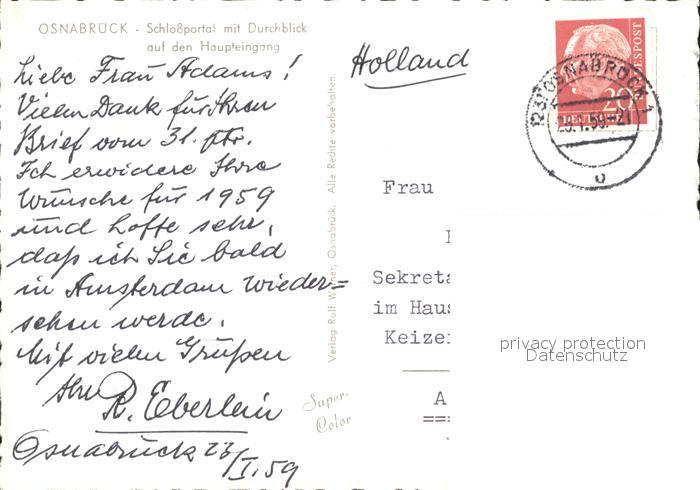 OSNABRÜCK - Schloßportal mit Durchblick
auf den Haupteingang
Liebe Frau Adams!
Vielen Dank für Ihren
Brief vom 31. ptr.
Ich erwidere Ihre
Wünsche für 1959
und hoffe sehr,
daß ich Sie bald
in Amsterdam wieder=
sehen werde.
Mit vielen Grüßen
Ihr R. Eberlein
Osnabrück 23/I.59
Verlag Rolf Werner, Osnabrück. Alle Rechte vorbehalten.
Super-
Color
Holland
(23) OSNABRÜCK 1
23.1.59.-21
20
DEUT
BUNDESPOST
Frau
Sekreta
im Haus
Keizer
A
==
privacy protection
Datenschutz